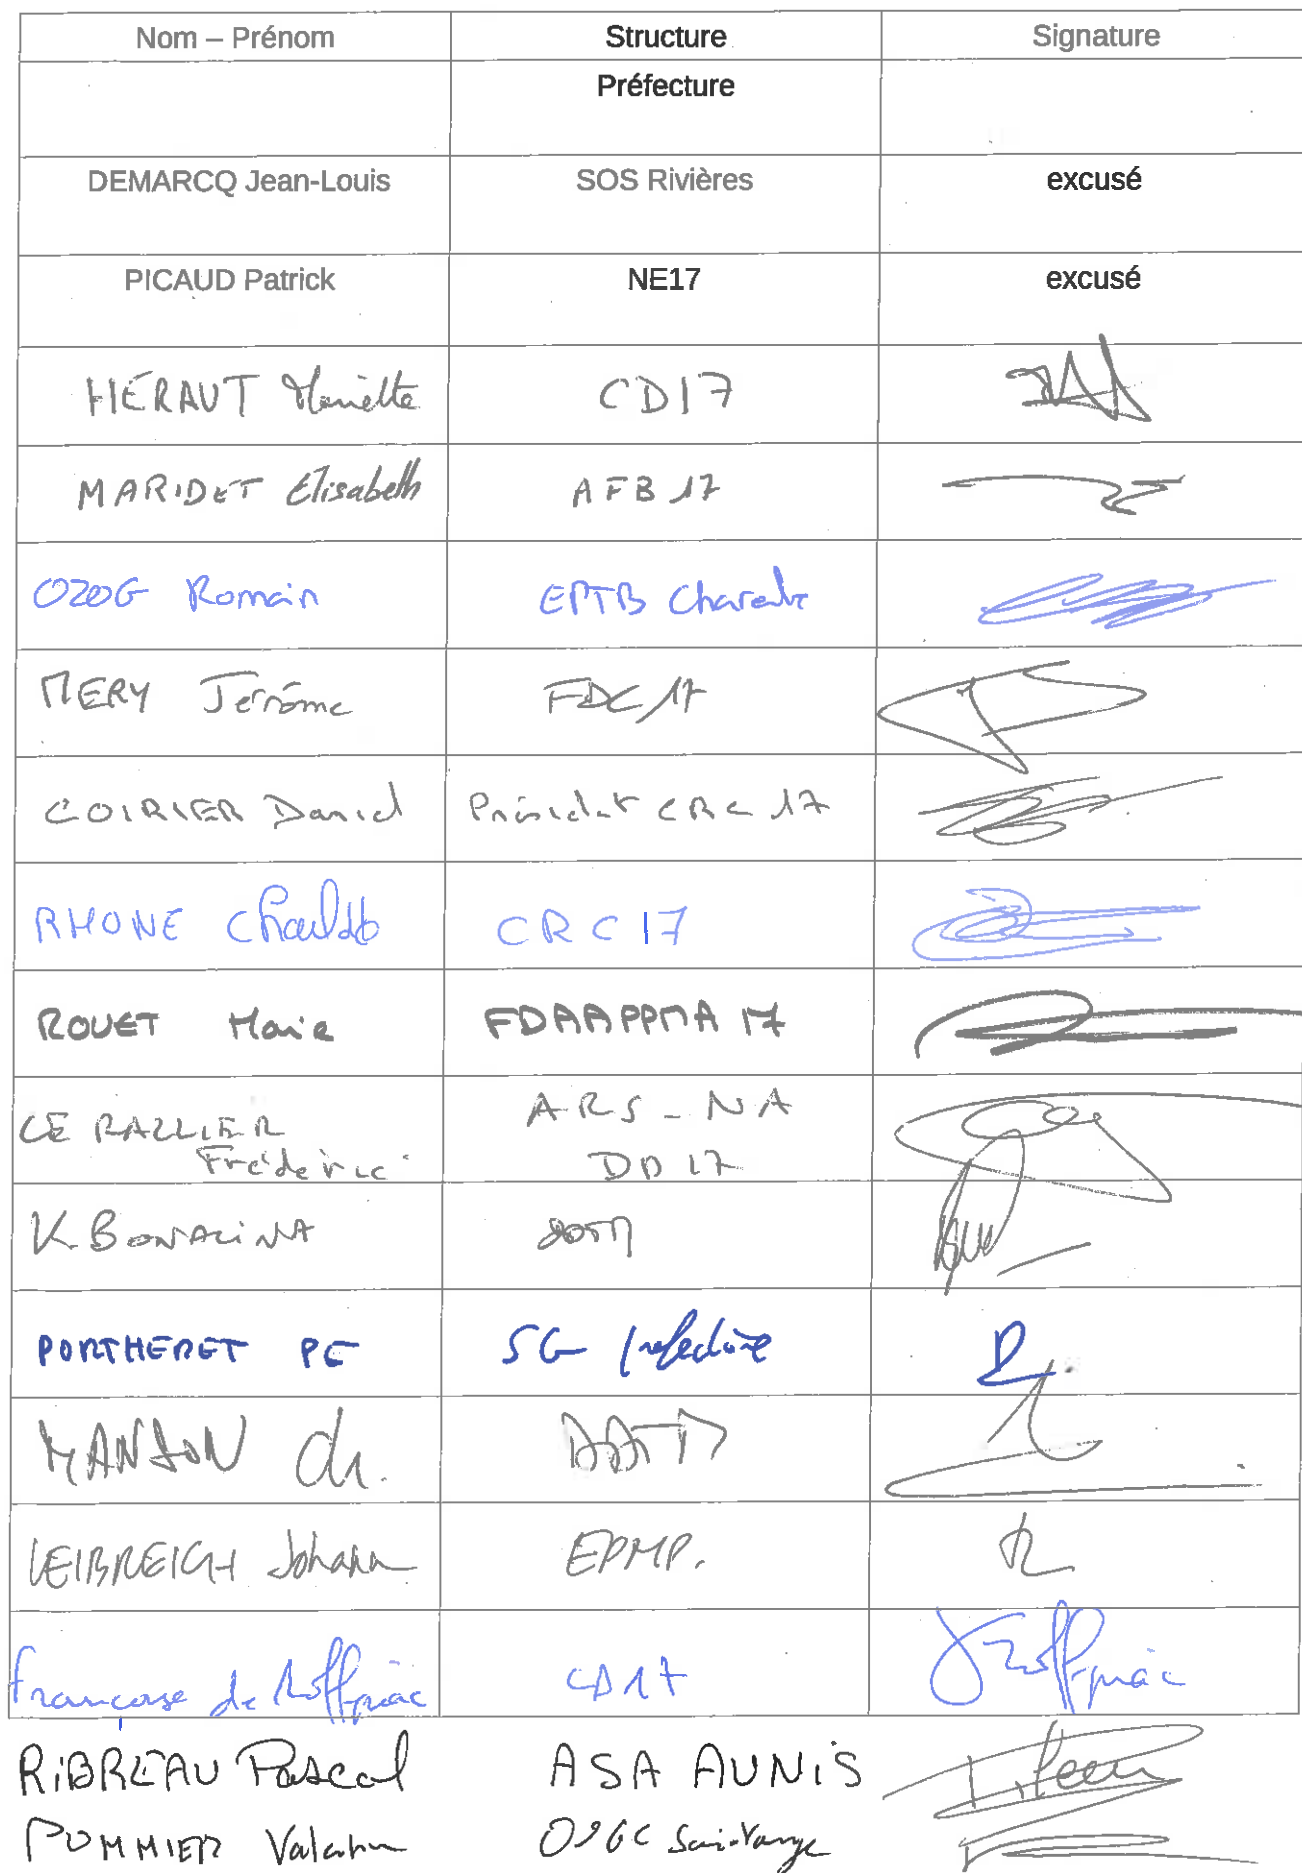 Nom – Prénom Structure Signature
Préfecture
DEMARCQ Jean-Louis SOS Rivières excusé
PICAUD Patrick NE17 excusé
HÉRAUT Mariette CD17
MARIDET Elisabeth AFB 17
OZOG Romain EPTB Charente
MERY Jérôme FDC 17
COIRIER Daniel Président CRC 17
RHONE Charlotte CRC 17
ROUET Marie FDAAPPMA 17
LE RALLIER ARS - NA
Frédéric DD 17
K. BONACINA
PORTHERET PE SG préfecture
MANSON Ch.
LEIBREICH Johann EPMP.
Françoise de Roffignac CD17
RiBREAU Pascal ASA AUNiS
POMMIER Valentin OUGC Saintonge